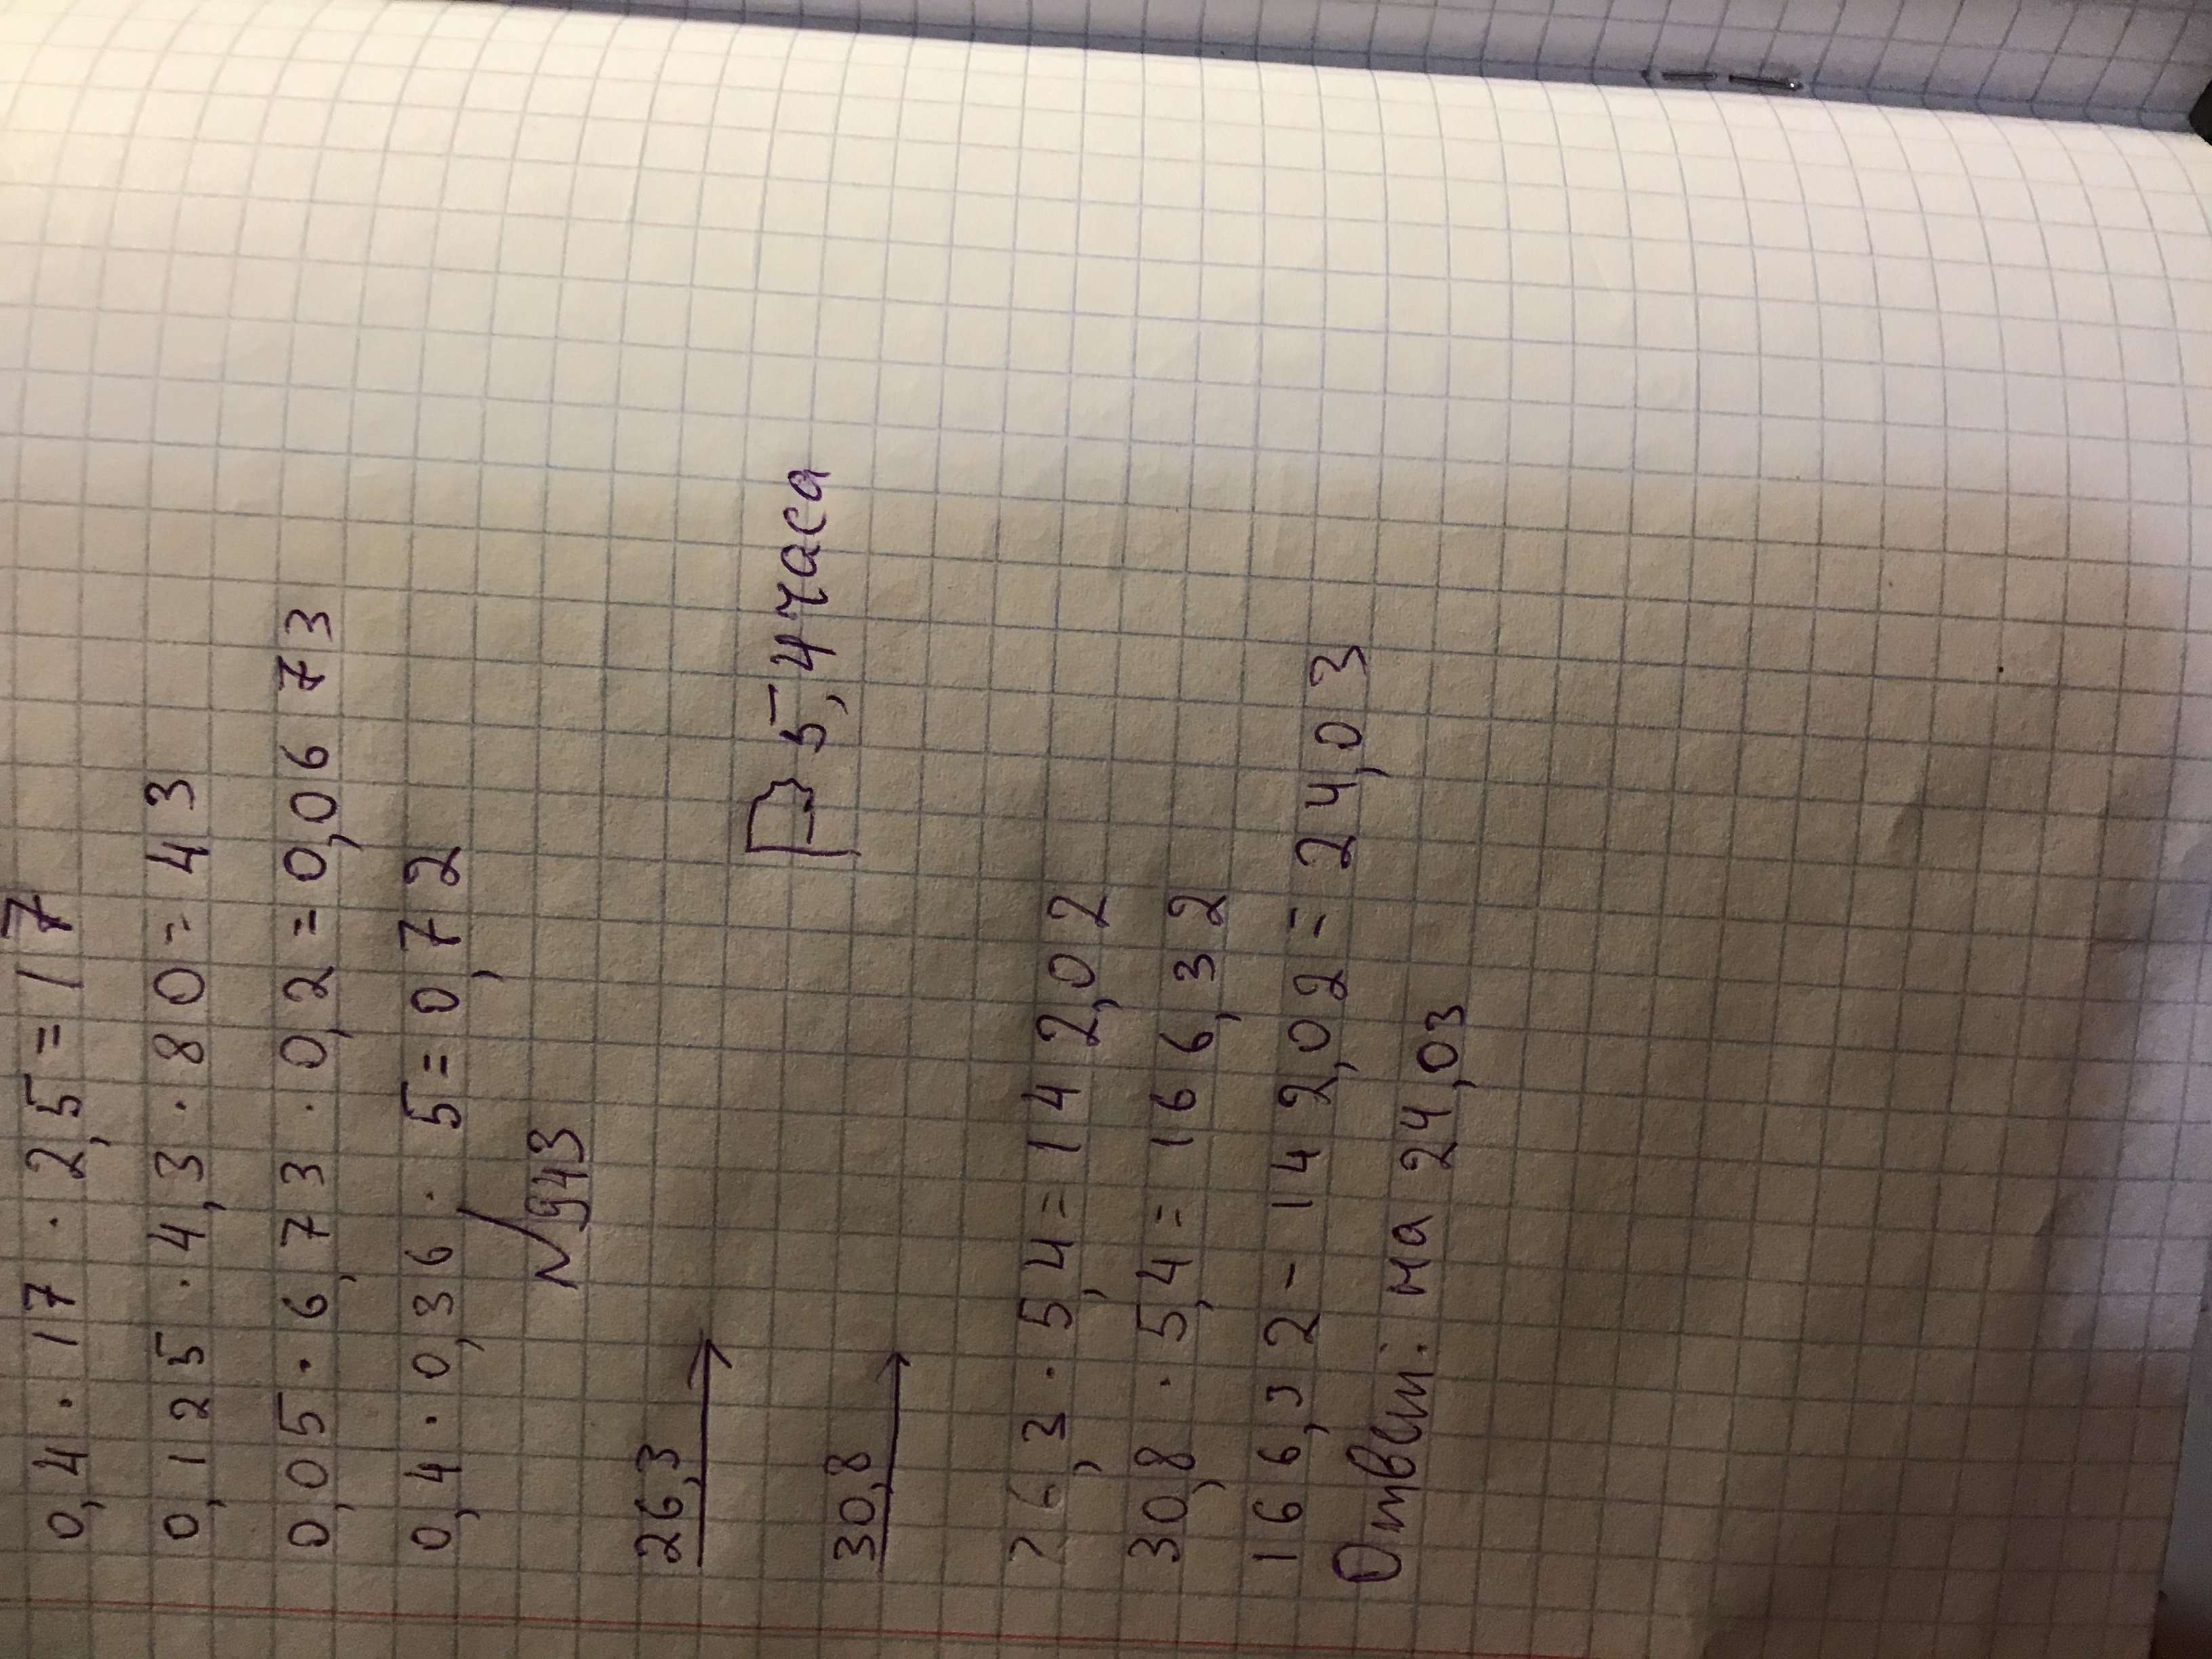 0,4 · 17 · 2,5 = 17
0,125 · 4,3 · 80 = 43
0,05 · 6,73 · 0,2 = 0,0673
0,4 · 0,36 · 5 = 0,72
№943
26,3
5,4 часа
30,8
26,3 · 5,4 = 142,02
30,8 · 5,4 = 166,32
166,32 - 142,02 = 24,03
Ответ: на 24,03